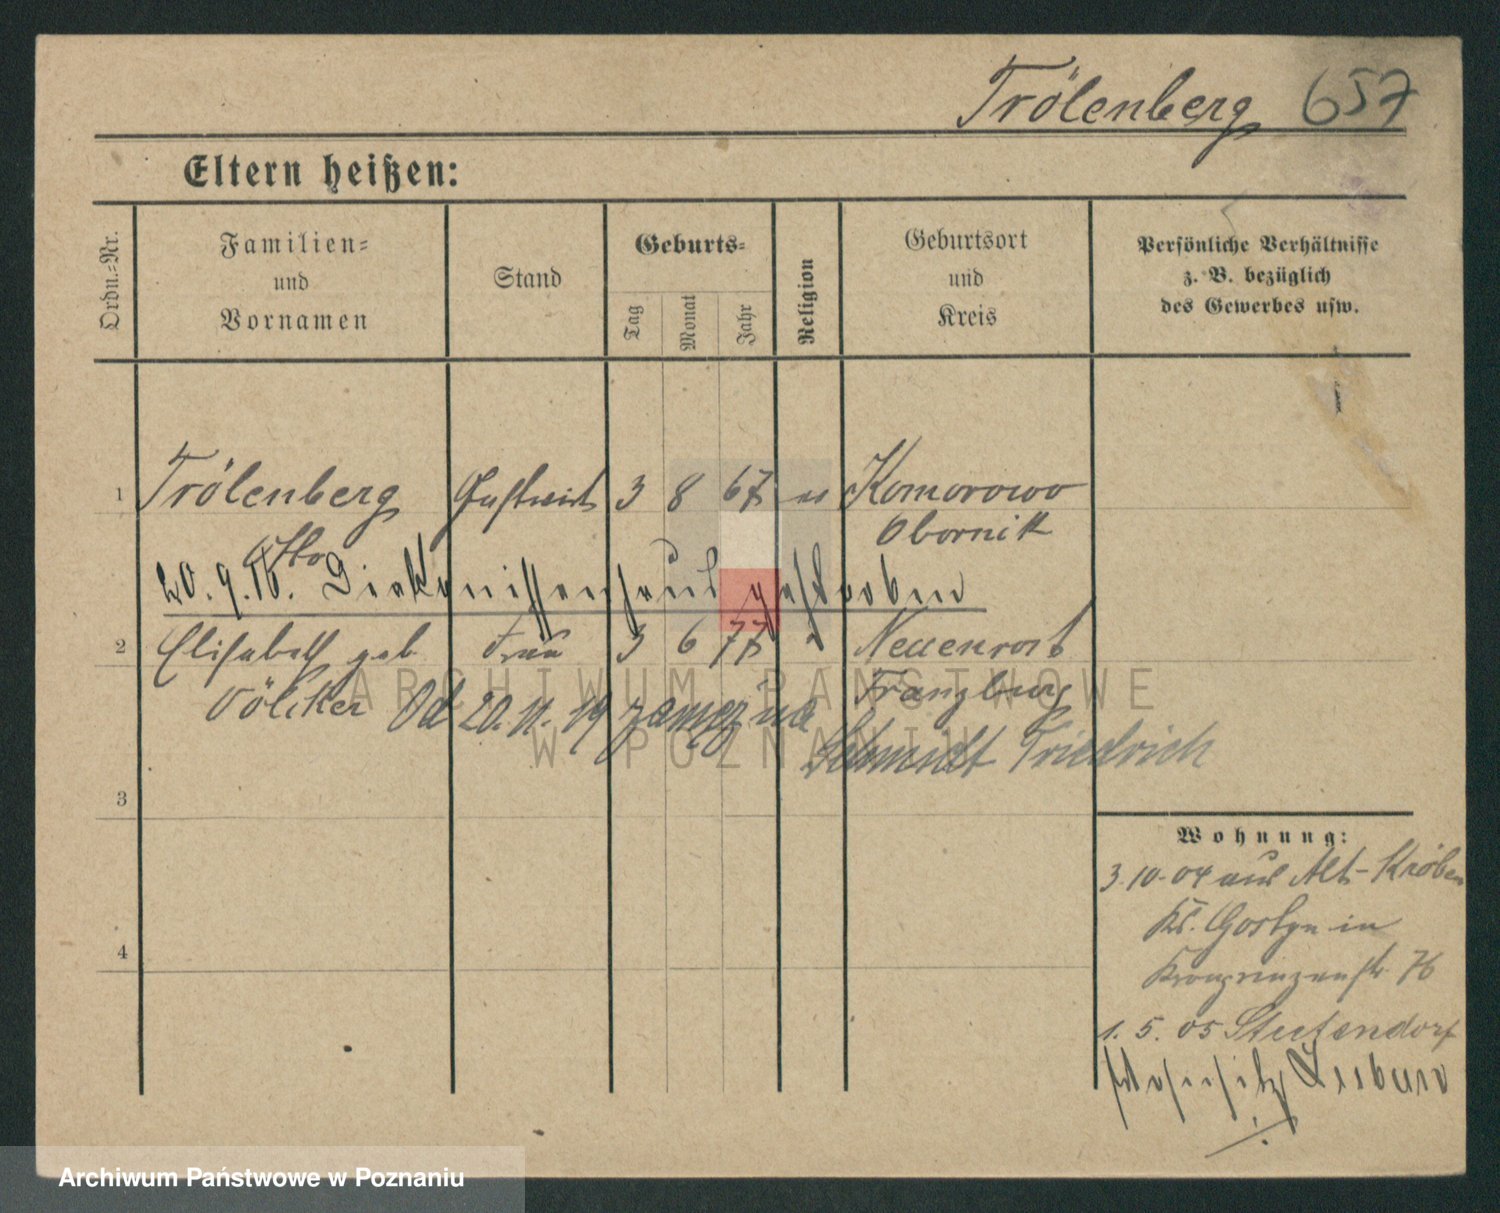 Trölenberg 657
Eltern heißen:
Ordn.-Nr.
Familien-
und
Vornamen
Stand
Geburts-
Tag
Monat
Jahr
Religion
Geburtsort
und
Kreis
Persönliche Verhältnisse
z. B. bezüglich
des Gewerbes usw.
1 Trölenberg Gastwirt 3 8 67 Komorowo
Otto Obornik
20. 9. 16. Diakonissenhaus gestorben
2 Elisabeth geb Frau 3 6 77 Neuenrost
Völiker Franzburg
Od 20. 11. 19 zamężna
Schmidt Friedrich
3
4
Wohnung:
3. 10. 04 aus Alt-Kröben
Ks. Gostyn in
Kronprinzenstr 76
1. 5. 05
ARCHIWUM PAŃSTWOWE
W POZNANIU
Archiwum Państwowe w Poznaniu